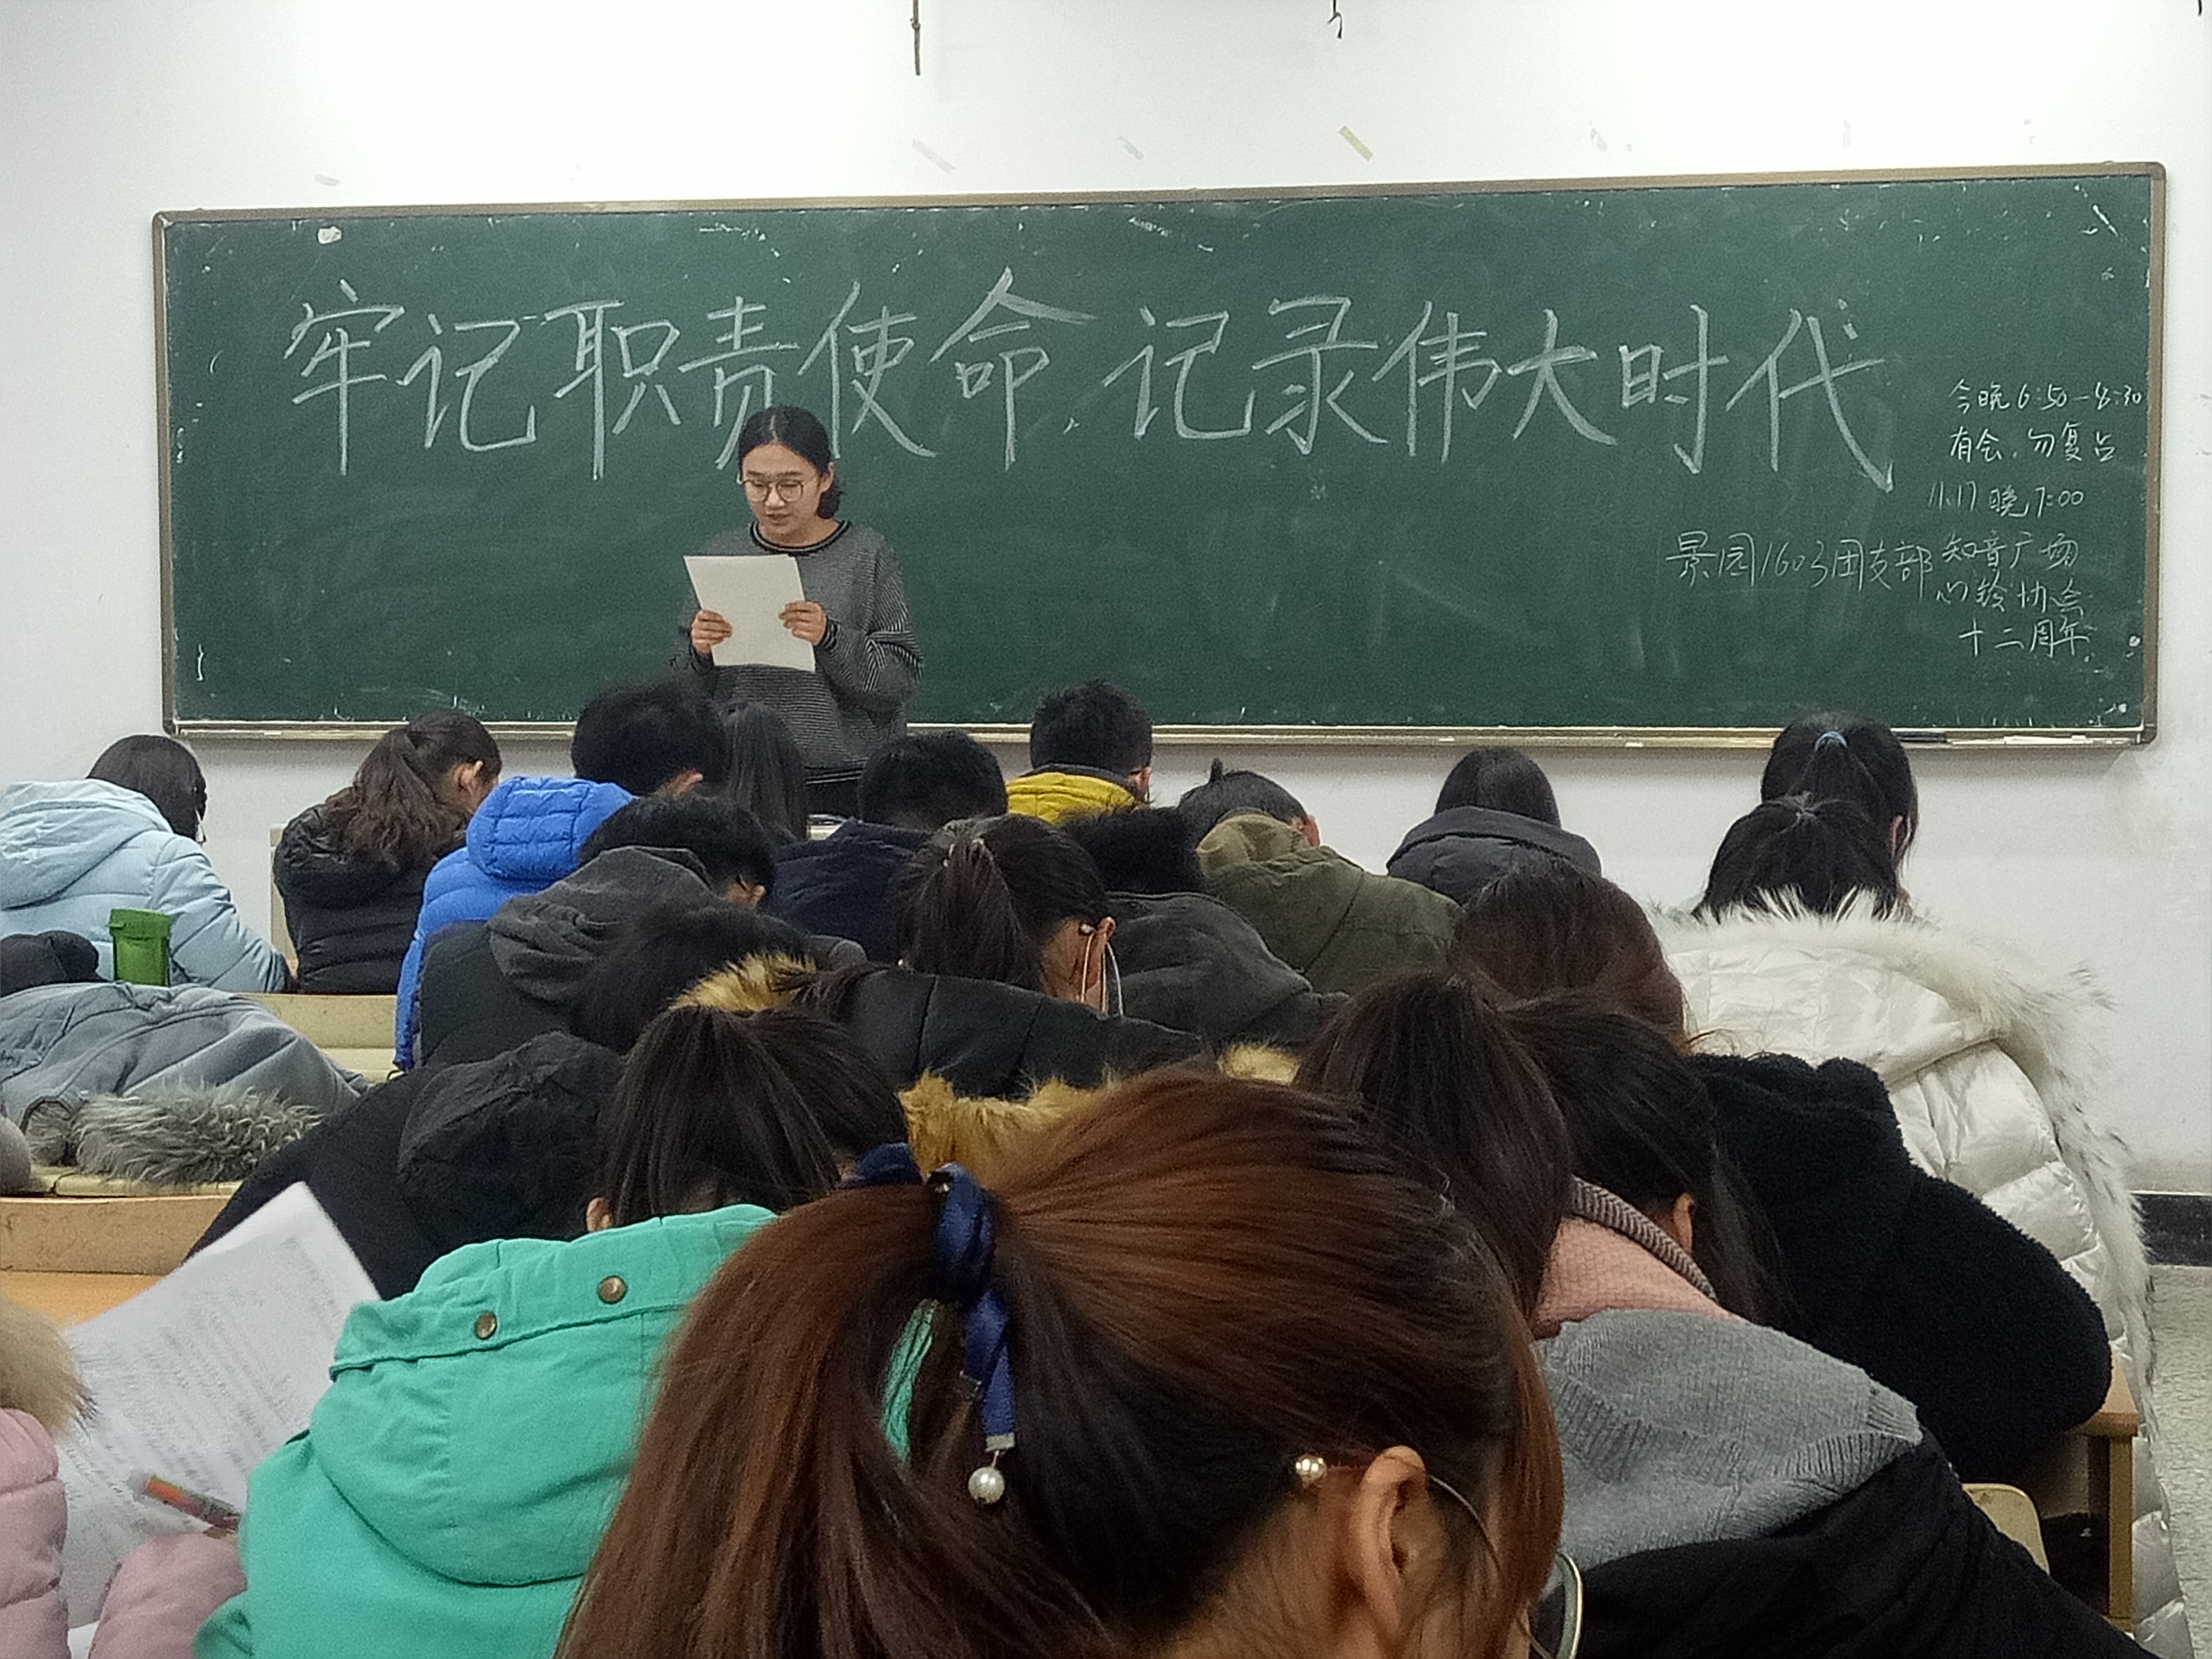 牢记职责使命,记录伟大时代
今晚6:50-8:30
有会,勿复占
11.17 晚7:00
景园1603团支部
知音广场
心铃协会
十二周年